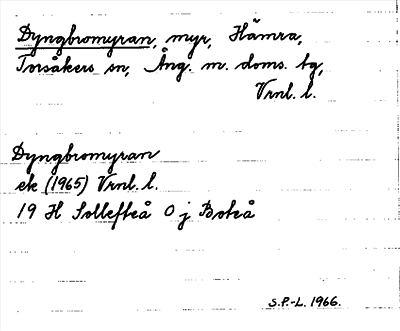 Dyngbromyran, myr, Hämra,
Torsåkers sn, Ång. m. doms. tg,
Vrnl. l.
Dyngbromyran
ek (1965) Vrnl. l.
19 H Sollefteå O j Boteå
S.P.-L. 1966.